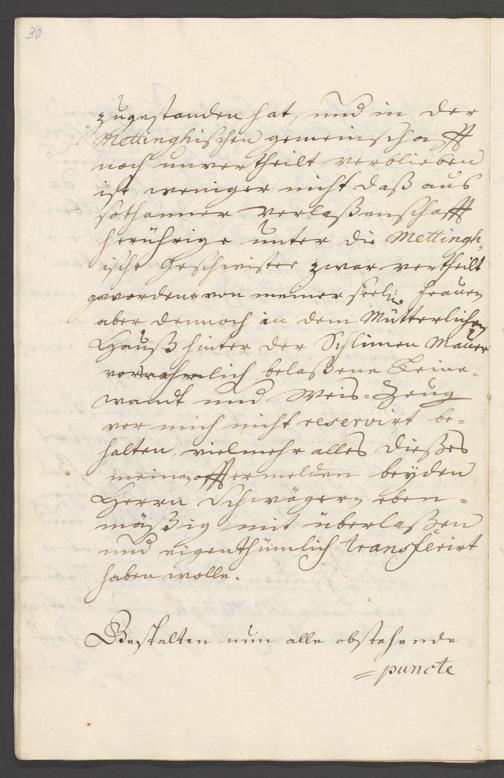 30
zugestanden hat, und in der
Mettinghischen gemeinschafft
noch unvertheilt verblieben
ist, weniger nicht daß aus
sothanner verlaßenschafft
herrührige unter die Mettingh,
ische Geschwister zwar vertheilt
gewordene von meiner seel: Frauen
aber dennoch in dem Mütterlichen
Hauß hinter der Schlimen Mauer
belaßene Leine-
wandt und Weis-Zeug
vor mich nicht reservirt be-
halten, vielmehr alles dießes
meinen offtermelden beyden
Herrn Schwägern eben-
mäßig mit überlaßen
und eigenthümlich transferirt
haben wolle.
Gestalten nun alle obstehende
=puncte